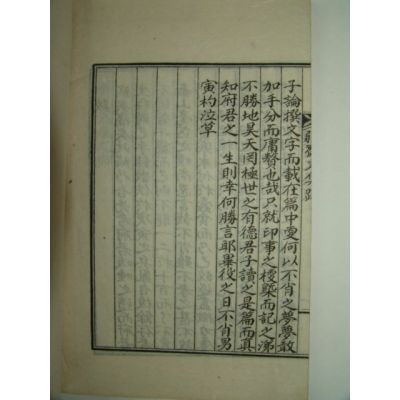 子論撰文字而載在篇中更何以不肖之夢夢敢
加手分而庸贅也哉只就印事之梗槩而記之涕
不勝地昊天罔極世之有德君子讀之是篇而真
知府君之一生則幸何勝言耶畢役之日不肖男
寅杓泣草